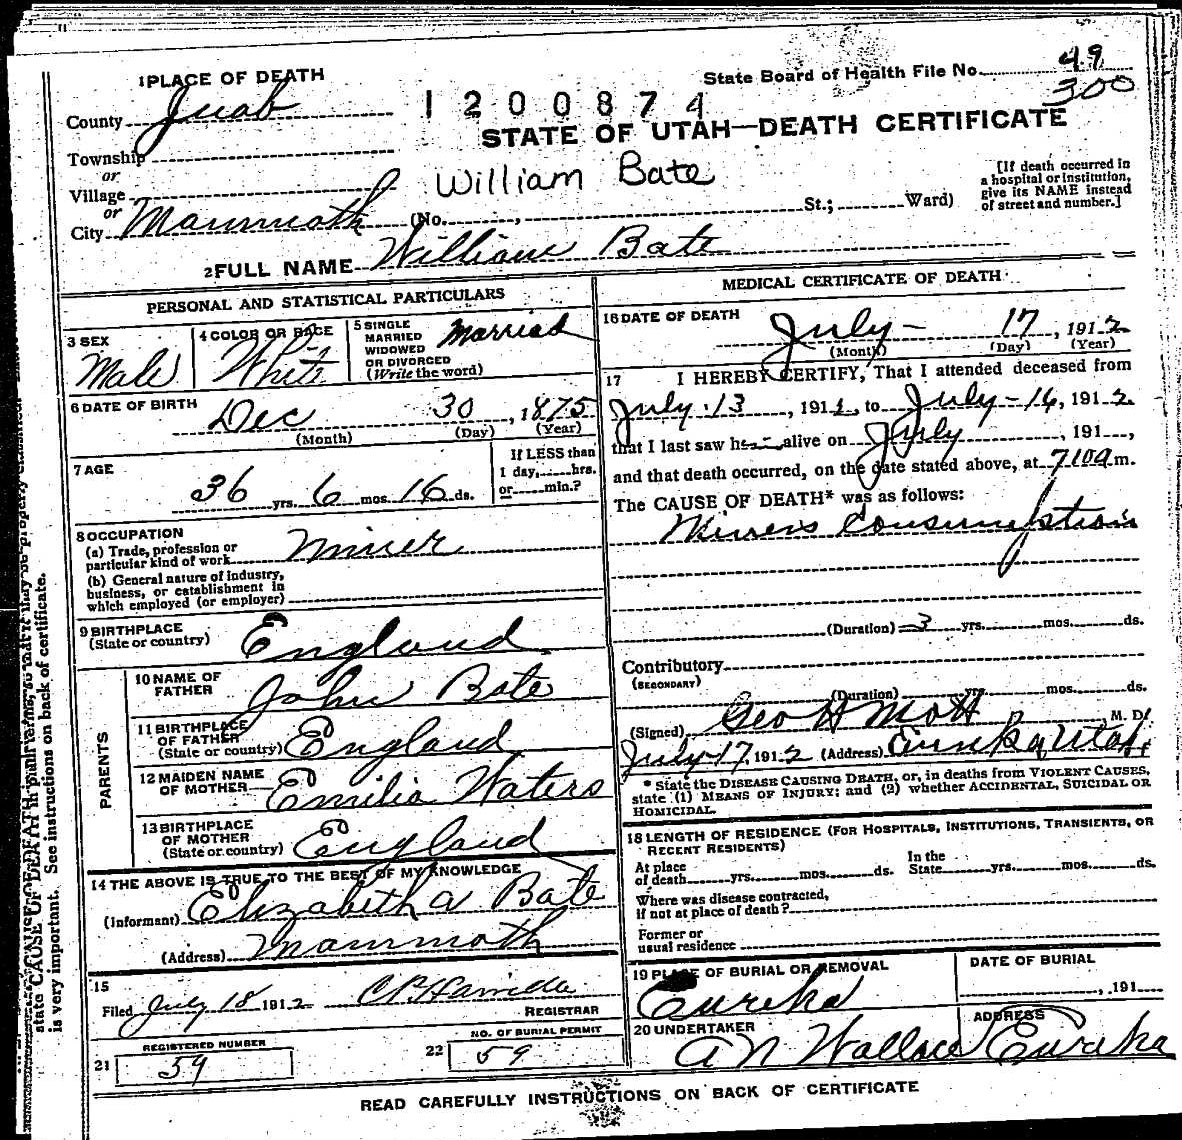 1 PLACE OF DEATH
State Board of Health File No. 49
300
County Juab
1200874
STATE OF UTAH—DEATH CERTIFICATE
Township
or
Village
or
City Mammoth (No. , St.; Ward)
William Bate
[If death occurred in
a hospital or institution,
give its NAME instead
of street and number.]
2 FULL NAME William Bate
PERSONAL AND STATISTICAL PARTICULARS
3 SEX
Male
4 COLOR OR RACE
White
5 SINGLE
MARRIED
WIDOWED
OR DIVORCED
(Write the word)
Married
6 DATE OF BIRTH
Dec 30, 1875
(Month) (Day) (Year)
7 AGE
36 yrs. 6 mos. 16 ds.
If LESS than
1 day, hrs.
or min.?
8 OCCUPATION
(a) Trade, profession or
particular kind of work Miner
(b) General nature of industry,
business, or establishment in
which employed (or employer)
9 BIRTHPLACE
(State or country) England
PARENTS
10 NAME OF
FATHER John Bate
11 BIRTHPLACE
OF FATHER
(State or country) England
12 MAIDEN NAME
OF MOTHER Emilia Waters
13 BIRTHPLACE
OF MOTHER
(State or country) England
14 THE ABOVE IS TRUE TO THE BEST OF MY KNOWLEDGE
(Informant) Elizabetha Bate
(Address) Mammoth
15
Filed July 18 1912
REGISTRAR
REGISTERED NUMBER
21 59
NO. OF BURIAL PERMIT
22 59
MEDICAL CERTIFICATE OF DEATH
16 DATE OF DEATH
July - 17, 1912
(Month) (Day) (Year)
17 I HEREBY CERTIFY, That I attended deceased from
July 13, 191 , to July - 16, 1912
that I last saw h alive on July , 191 ,
and that death occurred, on the date stated above, at 710a m.
The CAUSE OF DEATH* was as follows:
Miners Consumption
(Duration) 3 yrs. mos. ds.
Contributory
(SECONDARY)
(Duration) yrs. mos. ds.
(Signed) Geo H Mott M. D.
July 17, 1912 (Address) Eureka Utah
* State the DISEASE CAUSING DEATH, or, in deaths from VIOLENT CAUSES,
state (1) MEANS OF INJURY; and (2) whether ACCIDENTAL, SUICIDAL OR
HOMICIDAL.
18 LENGTH OF RESIDENCE (FOR HOSPITALS, INSTITUTIONS, TRANSIENTS, OR
RECENT RESIDENTS)
At place
of death yrs. mos. ds.
In the
State yrs. mos. ds.
Where was disease contracted,
if not at place of death?
Former or
usual residence
19 PLACE OF BURIAL OR REMOVAL
Eureka
DATE OF BURIAL
, 191
20 UNDERTAKER
A N Wallace
ADDRESS
Eureka
READ CAREFULLY INSTRUCTIONS ON BACK OF CERTIFICATE
state CAUSE OF DEATH in plain terms, so that it may be properly classified.
is very important. See instructions on back of certificate.